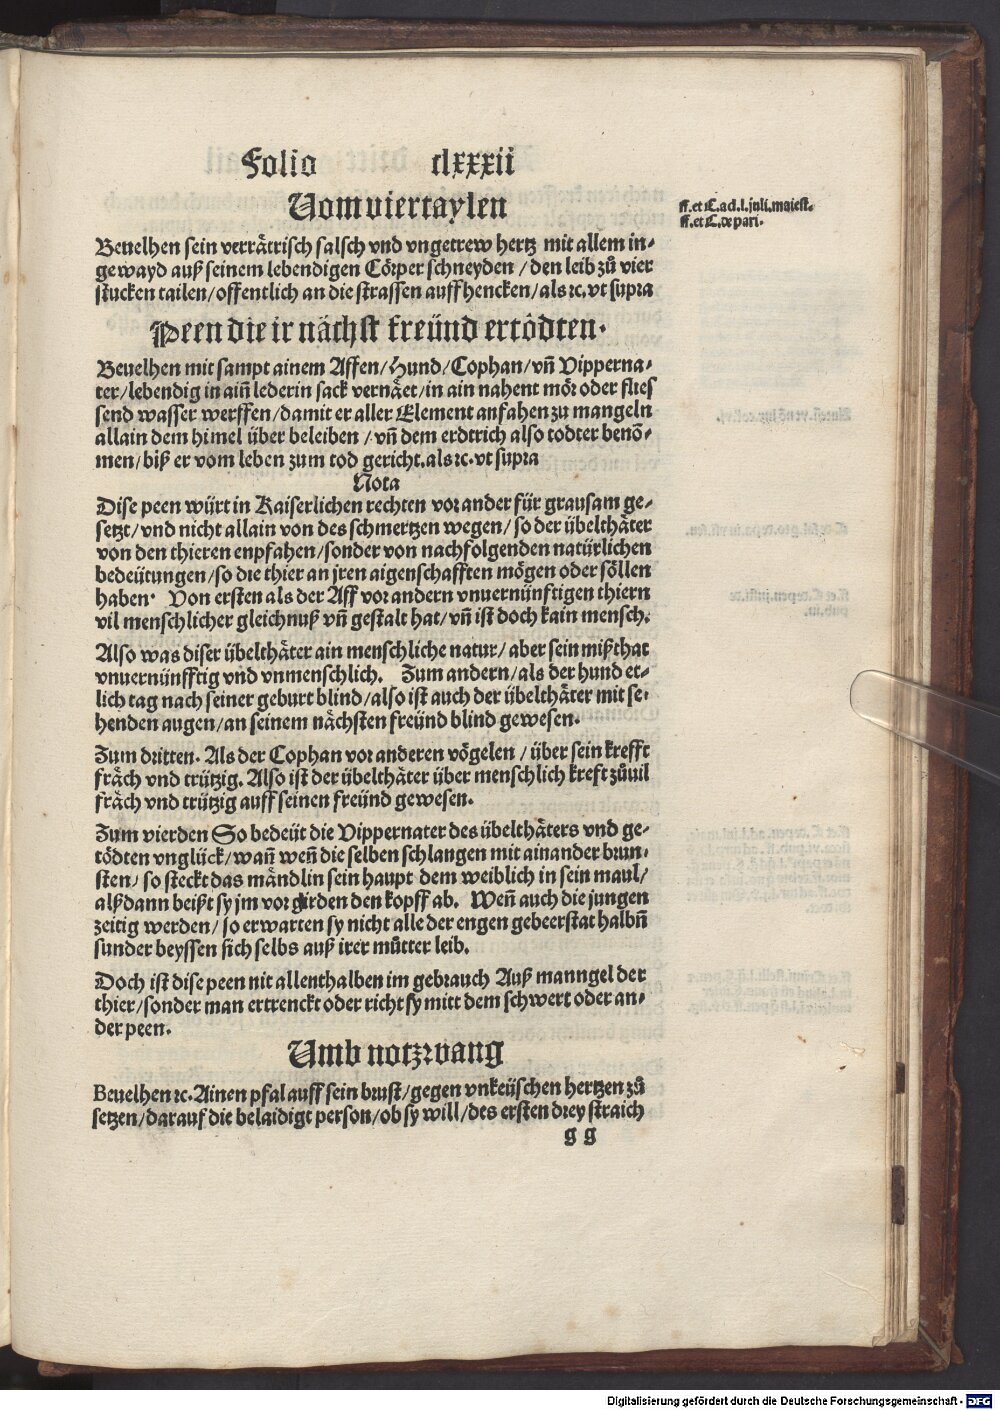 Folio clxxxii
Vom viertaylen
ff. et C. ad. l. juli. maiest.
ff. et C. de pari.
Beuelhen sein verrätrisch falsch vnd vngetrew hertz mit allem in-
gewayd auß seinem lebendigen Cörper schneyden / den leib zů vier
stucken tailen / offentlich an die strassen auffhencken / als ꝛc. vt supra
Peen die ir nächst freünd ertödten.
Beuelhen mit sampt ainem Affen / Hund / Cophan / vñ Vipperna-
ter / lebendig in aiñ lederin sack vernäet / in ain nahent mör oder flies
send wasser werffen / damit er aller Element anfahen zu mangeln
allain dem himel über beleiben / vñ dem erdtrich also todter benõ-
men / biß er vom leben zum tod gericht. als ꝛc. vt supra
Nota
Dise peen würt in Kaiserlichen rechten vor ander für grausam ge-
setzt / vnd nicht allain von des schmertzen wegen / so der übelthäter
von den thieren enpfahen / sonder von nachfolgenden natürlichen
bedeütungen / so die thier an jren aigenschafften mögen oder söllen
haben. Von ersten als der Aff vor andern vnuernünftigen thiern
vil menschlicher gleichnuß vñ gestalt hat / vñ ist doch kain mensch.
Also was diser übelthäter ain menschliche natur / aber sein mißthat
vnuernünfftig vnd vnmenschlich. Zum andern / als der hund et-
lich tag nach seiner geburt blind / also ist auch der übelthäter mit se-
henden augen / an seinem nächsten freünd blind gewesen.
Zum dritten. Als der Cophan vor anderen vögelen / über sein krefft
fräch vnd trützig. Also ist der übelthäter über menschlich kreft zůuil
fräch vnd trützig auff seinen freünd gewesen.
Zum vierden So bedeüt die Vippernater des übelthäters vnd ge-
tödten vnglück / wañ weñ die selben schlangen mit ainander brun-
sten / so steckt das mändlin sein haupt dem weiblich in sein maul /
alßdann beißt sy jm vor girden den kopff ab. Weñ auch die jungen
zeitig werden / so erwarten sy nicht alle der engen gebeerstat halbñ
sunder beyssen sich selbs auß irer můtter leib.
Doch ist dise peen nit allenthalben im gebrauch Auß manngel der
thier / sonder man ertrenckt oder richt sy mitt dem schwert oder an-
der peen.
Umb notzwang
Beuelhen ꝛc. Ainen pfal auff sein brust / gegen vnkeüschen hertzen zů
setzen / darauf die belaidigt person / ob sy will / des ersten drey straich
g g
Digitalisierung gefördert durch die Deutsche Forschungsgemeinschaft - DFG